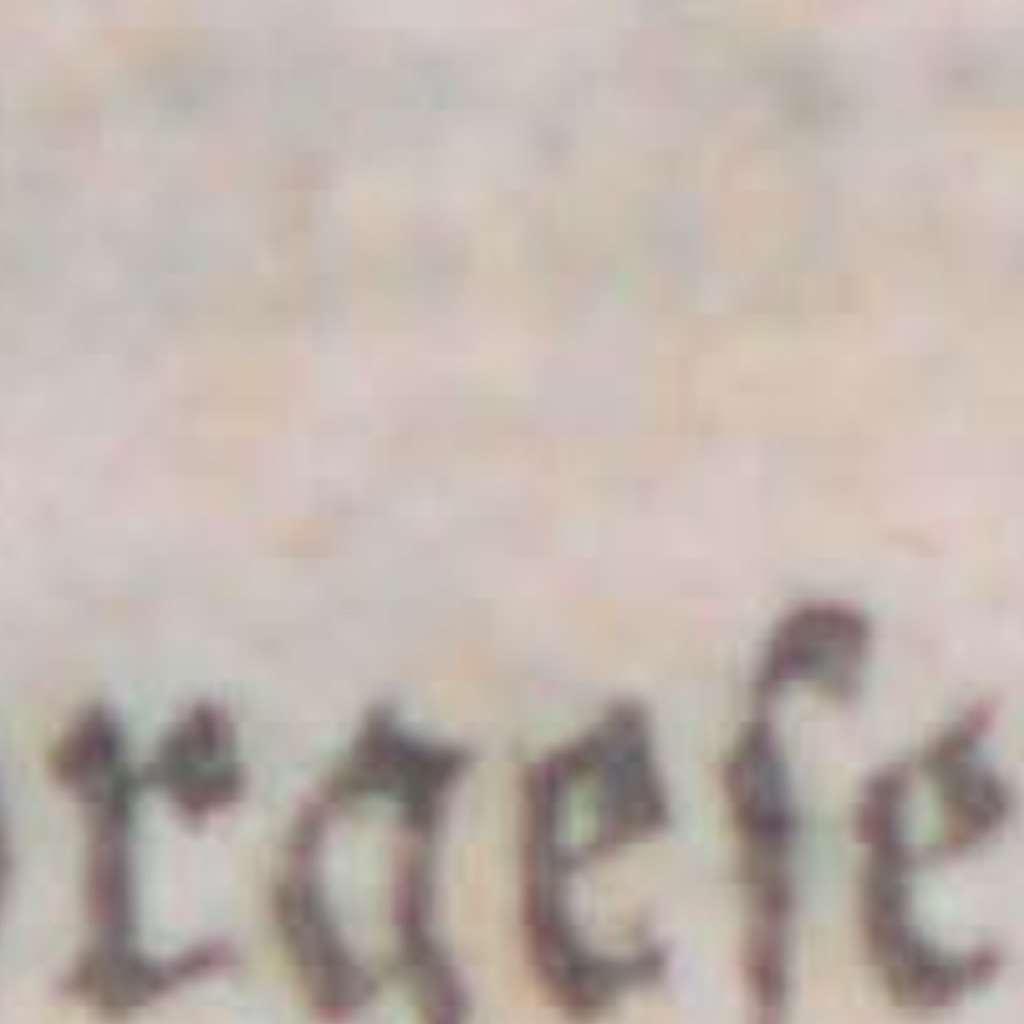 raeſe